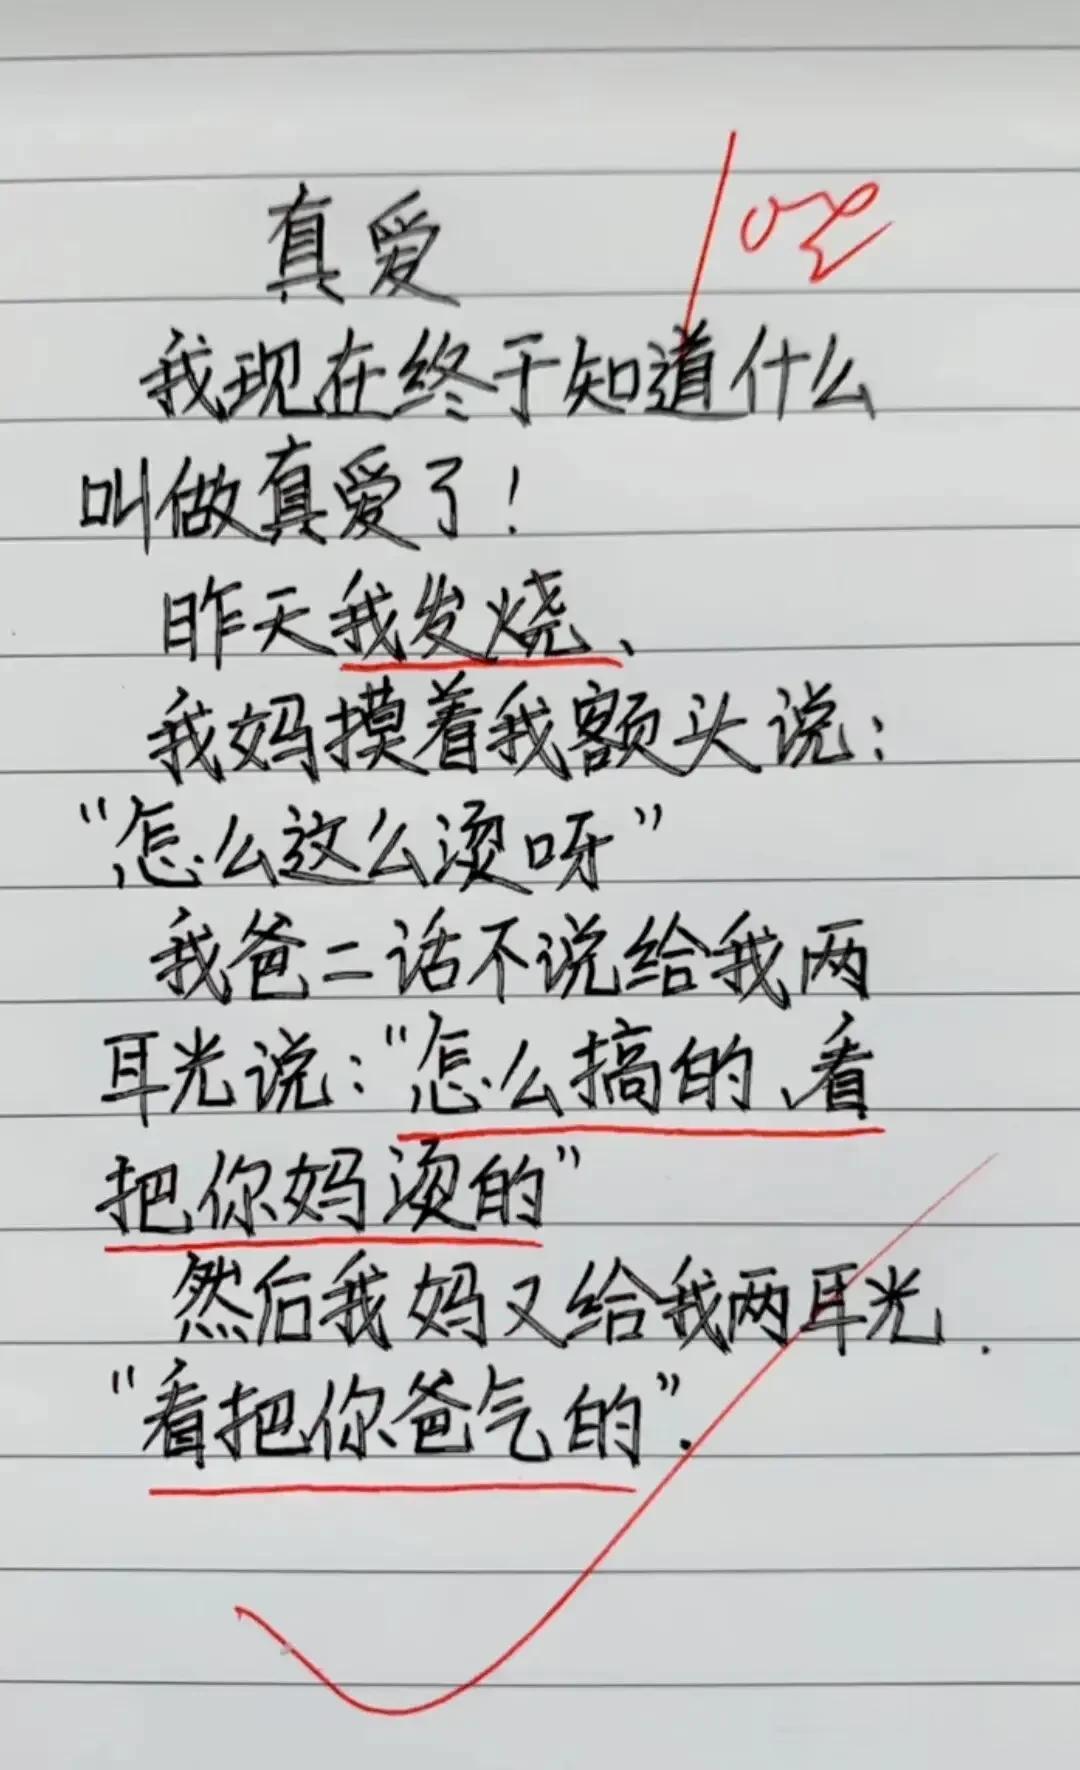 真爱
我现在终于知道什么
叫做真爱了！
昨天我发烧、
我妈摸着我额头说：
“怎么这么烫呀”
我爸二话不说给我两
耳光说：“怎么搞的、看
把你妈烫的”
然后我妈又给我两耳光.
“看把你爸气的”.